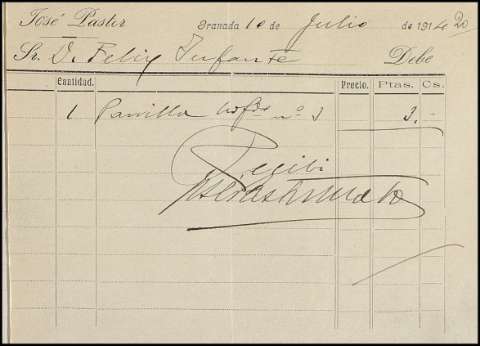 José Pastor Granada 10 de Julio de 1914 20
Sr. D. Felix Infante Debe
Cantidad. Precio. Ptas. Cs.
1 Parrilla nº 3 3. -
Recibi